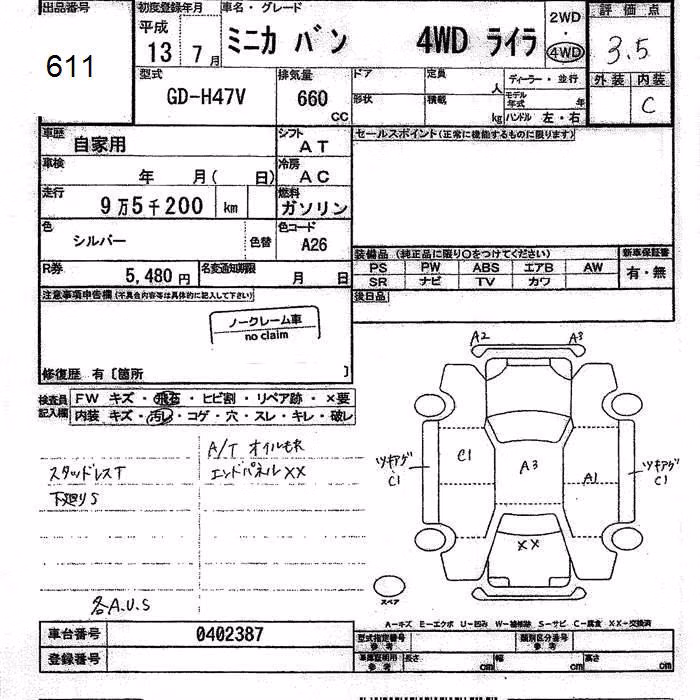 出品番号 初度登録年月 車名・グレード 評価点
611
平成 13 7月 ミニカ バン 4WD ライラ 2WD ・ 4WD 3.5
型式 GD-H47V 排気量 660 CC ドア 定員 人 ディーラー・並行 外装 内装
形状 積載 kg モデル年式 年 ハンドル 左・右 C
車歴 自家用 シフト AT セールスポイント(正常に機能するものに限ります)
車検 年 月( 日) 冷房 AC
走行 9万5千200 km 燃料 ガソリン
色 シルバー 色替 色コード A26
装備品 (純正品に限り○をつけてください) 新車保証書
R券 5,480円 名変通知期限 月 日
PS PW ABS エアB AW 有・無
SR ナビ TV カワ
注意事項申告欄(不具合内容等は具体的に記入して下さい) 後日品
ノークレーム車
no claim
修復歴 有〔箇所 〕
検査員記入欄 FW キズ・飛石・ヒビ割・リペア跡・×要
内装 キズ・汚れ・コゲ・穴・スレ・キレ・破レ
A/T オイルモレ
スタッドレスT エンドパネルXX
下廻りS
各A.U.S
A2 A3
ツキアゲ C1 C1 A3 A1 ツキアゲ C1
XX
スペア
A-キズ E-エクボ U-凹み W-補修跡 S-サビ C-腐食 XX-交換済
車台番号 0402387 型式指定番号 参考 類別区分番号 参考
登録番号 車庫証明用 参考 長さ cm 幅 cm 高さ cm